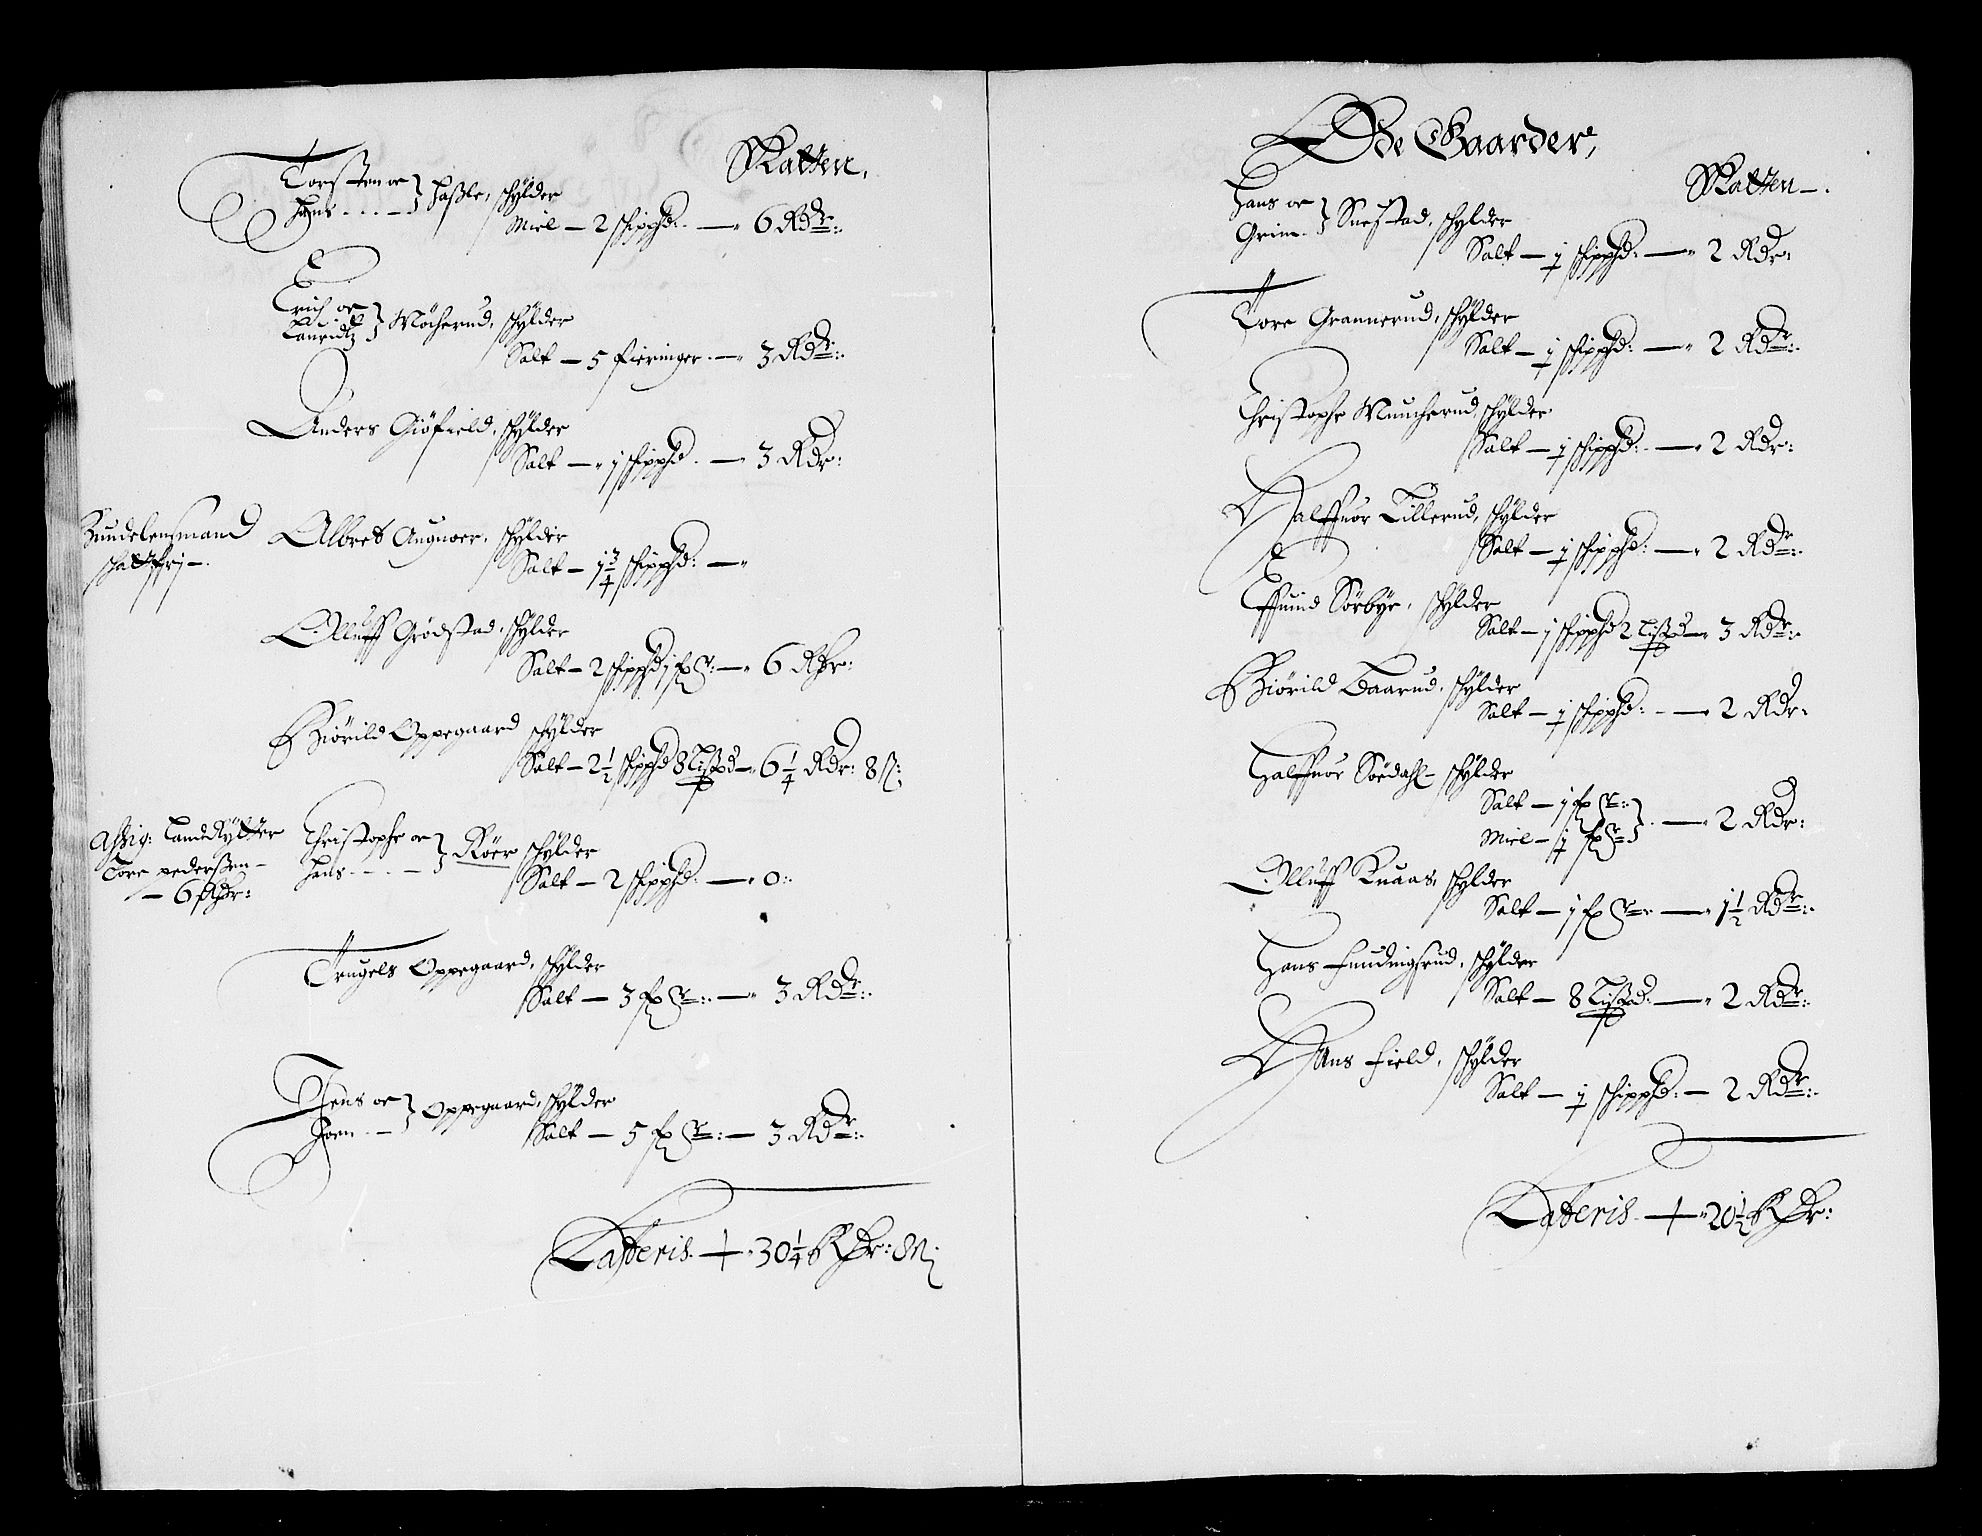 Skatten,
Torsten oc
Hans - - - } Haßle, schylder
Miel — 2 schippd: — 6 Rdr:
Erich oc
Lauridtz } Mocherud, schylder
Salt — 5 fieringer — 3 Rdr:
Anders Giöfield, schylder
Salt — 1 schippd — 3 Rdr:
Bundelensmand
schattfrj —
Albret Augnoer, schylder
Salt — 1 3/4 schippd: —
Olluff Grödstad, schylder
Salt — 2 schippd 1 fx — 6 Rdr:
Biörild Oppegaard schylder
Salt — 2 1/2 schippd 8 Lißpd — 6 1/4 Rdr: 8 ß:
Aßig: LandRytter
Tore pederßen —
— 6 Rdr:
Christopher oc
Hans - - - } Röer schylder
Salt — 2 schippd: — 0:
Trugels Oppegaard, schylder
Salt — 3 fx — 3 Rdr:
Jens oc
Joen - - } Oppegaard, schylder
Salt — 5 fx — 3 Rdr:
Latteris — 30 1/4 Rdr: 8 ß:
Öde Gaarder,
Skatten —
Hans oc
Grim } Snestad, schylder
Salt — 1/2 schippd: — 2 Rdr:
Tore Grannerud, schylder
Salt — 1/2 schippd: — 2 Rdr:
Christopher Muncherud, schylder
Salt — 1/2 schippd: — 2 Rdr:
Halffuor Tillerud, schylder
Salt — 1/2 schippd: — 2 Rdr:
Effuind Sörbye, schylder
Salt — 1 schippd 2 Lißpd — 3 Rdr:
Biörild Baarud, schylder
Salt — 1/2 schippd: — 2 Rdr:
Halffuor Sördahl — schylder
Salt — 1 fx
Miel — 1/2 fx } — 2 Rdr:
Olluff Knaas, schylder
Salt — 1 fx — 1 1/2 Rdr:
Hans schylder
Salt — 8 Lißpd: — 2 Rdr:
Hans Field, schylder
Salt — 1/2 schippd: — 2 Rdr:
Latteris — 20 1/2 Rdr: